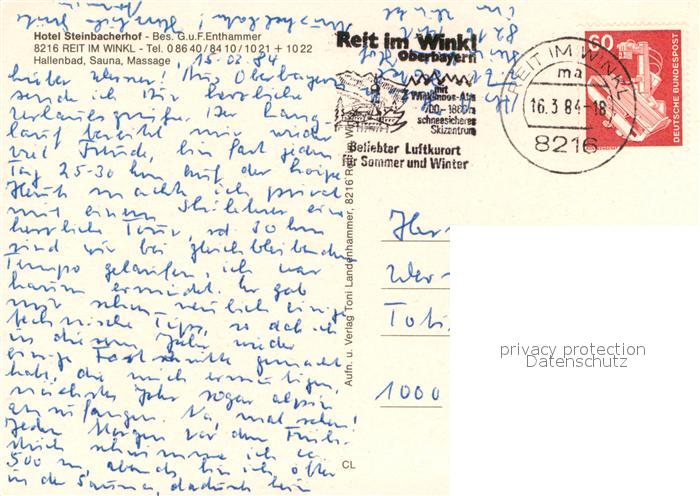 Hotel Steinbacherhof - Bes. G.u.F.Enthammer
8216 REIT IM WINKL - Tel. 0 86 40/84 10/10 21 + 10 22
Hallenbad, Sauna, Massage
15.02.84
Lieber Werner! Aus Oberbayern
sende ich Dir herzliche
Urlaubsgrüße. Der Lang-
lauf bereitet mir wieder
viel Freude, bin fast jeden
Tag 25-30 km auf der Loipe
Heute machte ich privat
mit einem Skilehrer eine
herrliche Tour, rd. 30 km
sind wir bei gleichbleibendem
Tempo gelaufen, ich war
kaum ermüdet. Er gab
mir schon neulich einige
technische Tips, so daß ich
in diesem Jahr wieder
einige Fortschritte gemacht
hab, die mich ermutigen,
nächstes Jahr sogar alpin
anzufangen. Na, mal sehen!
Jeden Morgen vor dem Früh-
stück schwimme ich ca.
500 m, abends bin ich öfter
in der Sauna, dadurch kein
Reit im Winkl
Oberbayern
mit
Winklmoos-Alm
700-1860 m
schneesicheres
Skizentrum
Beliebter Luftkurort
für Sommer und Winter
REIT IM WINKL
ma
16.3.84-18
8216
60
DEUTSCHE BUNDESPOST
Aufn. u. Verlag Toni Landenhammer, 8216 Reit im Winkl
CL
Her
Wer
Tob
1000
privacy protection
Datenschutz